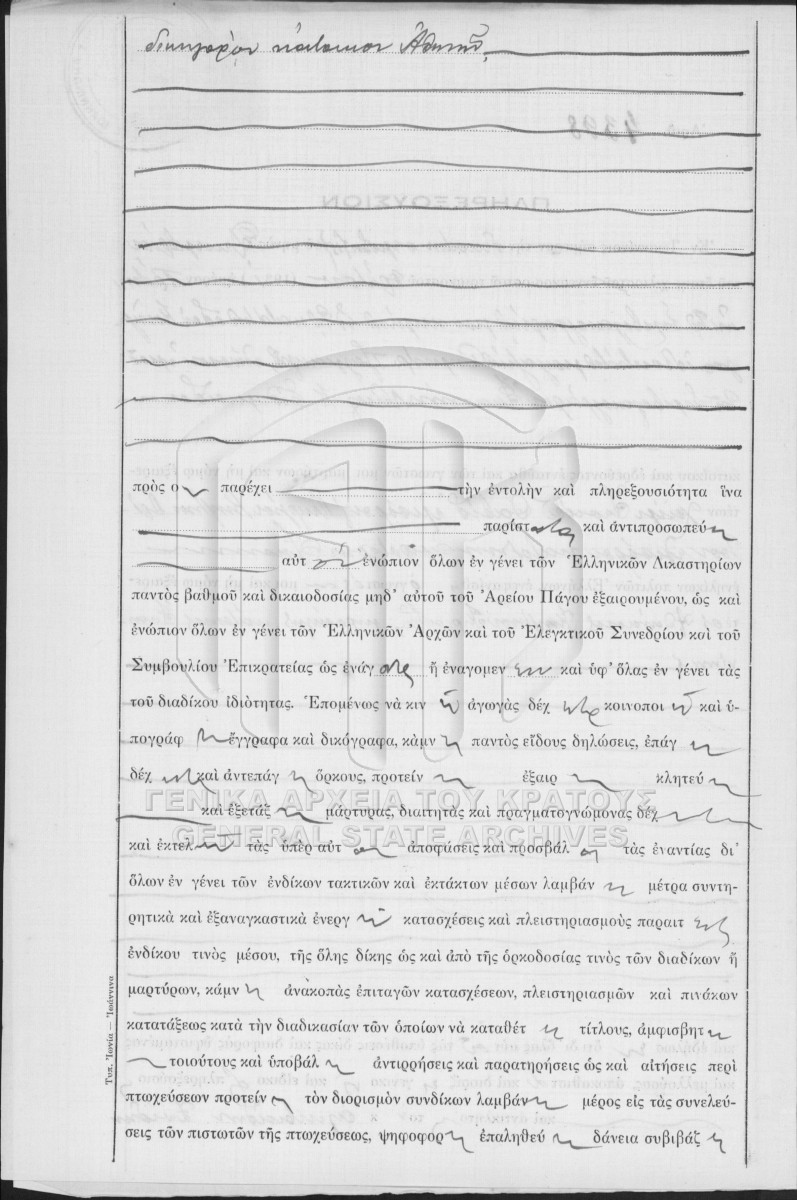 δικηγόρον κάτοικον Ἀθηνῶν,
πρὸς ὃν παρέχει τὴν ἐντολὴν καὶ πληρεξουσιότητα ἵνα
παρίσταται καὶ ἀντιπροσωπεύῃ
αὐτὸν ἐνώπιον ὅλων ἐν γένει τῶν Ἑλληνικῶν Δικαστηρίων
παντὸς βαθμοῦ καὶ δικαιοδοσίας μηδ' αὐτοῦ τοῦ Ἀρείου Πάγου ἐξαιρουμένου, ὡς καὶ
ἐνώπιον ὅλων ἐν γένει τῶν Ἑλληνικῶν Ἀρχῶν καὶ τοῦ Ἐλεγκτικοῦ Συνεδρίου καὶ τοῦ
Συμβουλίου Ἐπικρατείας ὡς ἐνάγ ἢ ἐναγομεν καὶ ὑφ' ὅλας ἐν γένει τὰς
τοῦ διαδίκου ἰδιότητας. Ἑπομένως νὰ κινῇ ἀγωγὰς δέχηται κοινοποιῇ καὶ ὑ-
πογράφῃ ἔγγραφα καὶ δικόγραφα, κάμνῃ παντὸς εἴδους δηλώσεις, ἐπάγῃ
δέχηται καὶ ἀντεπάγῃ ὅρκους, προτείνῃ ἐξαιρῇ κλητεύῃ
καὶ ἐξετάζῃ μάρτυρας, διαιτητὰς καὶ πραγματογνώμονας δέχηται
ΓΕΝΙΚΑ ΑΡΧΕΙΑ ΤΟΥ ΚΡΑΤΟΥΣ
GENERAL STATE ARCHIVES
καὶ ἐκτελῇ τὰς ὑπὲρ αὐτ ἀποφάσεις καὶ προσβάλῃ τὰς ἐναντίας δι'
ὅλων ἐν γένει τῶν ἐνδίκων τακτικῶν καὶ ἐκτάκτων μέσων λαμβάνῃ μέτρα συντη-
ρητικὰ καὶ ἐξαναγκαστικὰ ἐνεργῇ κατασχέσεις καὶ πλειστηριασμοὺς παραιτῆται
ἐνδίκου τινὸς μέσου, τῆς ὅλης δίκης ὡς καὶ ἀπὸ τῆς ὁρκοδοσίας τινὸς τῶν διαδίκων ἢ
μαρτύρων, κάμνῃ ἀνακοπὰς ἐπιταγῶν κατασχέσεων, πλειστηριασμῶν καὶ πινάκων
κατατάξεως κατὰ τὴν διαδικασίαν τῶν ὁποίων νὰ καταθέτῃ τίτλους, ἀμφισβητῇ
τοιούτους καὶ ὑποβάλῃ ἀντιρρήσεις καὶ παρατηρήσεις ὡς καὶ αἰτήσεις περὶ
πτωχεύσεων προτείνῃ τὸν διορισμὸν συνδίκων λαμβάνῃ μέρος εἰς τὰς συνελεύ-
σεις τῶν πιστωτῶν τῆς πτωχεύσεως, ψηφοφορῇ ἐπαληθεύῃ δάνεια συβιβάζῃ
Τυπ. Ἰονία — Ἰωάννινα